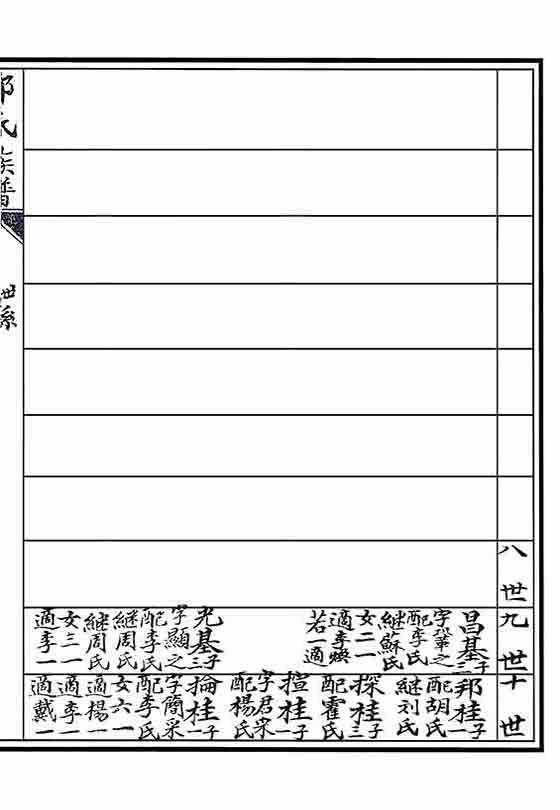 八世
九世
昌基三子
字鞏之
配李氏
継蘇氏
女二一
適李煥
若一適
光基三子
字顯之
配李氏
継周氏
継周氏
女三一
適李一
十世
邦桂一子
配胡氏
継刘氏
探桂三子
配霍氏
揎桂一子
字君采
配楊氏
掄桂一子
字簡采
配李氏
女六一
適楊一
適李一
適戴一
氏族譜
世系